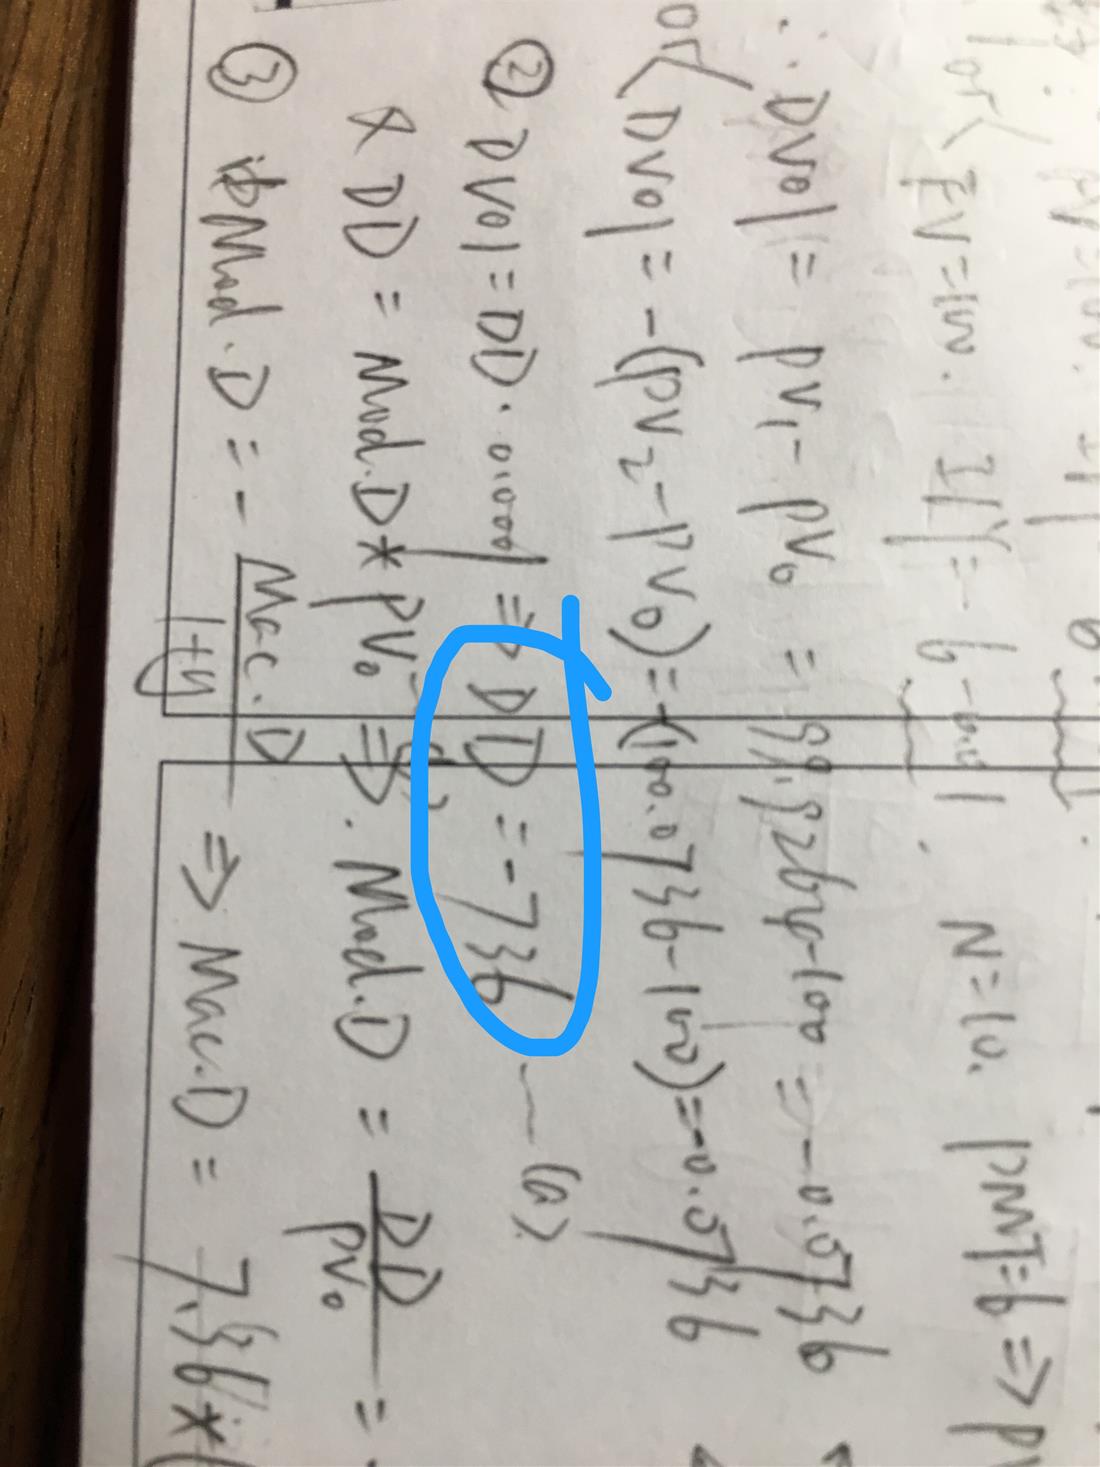 or { FV=100. I/Y= 6-0.01. N=10. PMT=6 ⇒ PV
∴ DV01 = PV₁- PV₀ = 99.9264-100 = -0.0736
or { DV01 = -(PV₂-PV₀)=-(100.0736-100)=-0.0736
② DV01=DD·0.0001 ⇒ DD=-736 — (a)
& DD = Mod.D* PV₀ ⇒ Mod.D = DD/PV₀ =
③ Mod.D = - Mac.D/1+y ⇒ Mac.D = 7.36*(